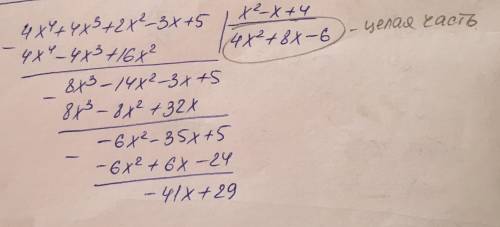 4x⁴+4x³+2x²-3x+5 | x²-x+4
- 4x⁴-4x³+16x² | 4x²+8x-6 - целая часть
- 8x³-14x²-3x+5
8x³-8x²+32x
- -6x²-35x+5
-6x²+6x-24
-41x+29